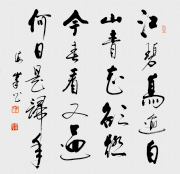 江碧鳥逾白
山青花欲燃
今春看又過
何日是歸年